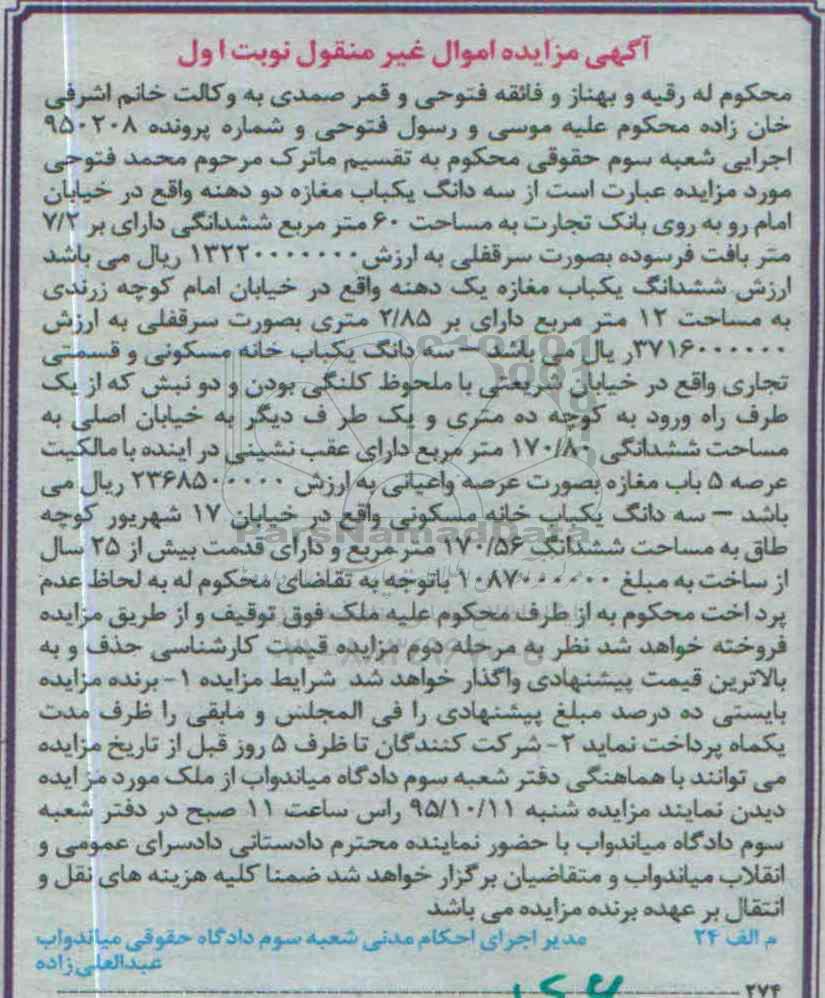 آگهی مزایده اموال غیر منقول نوبت اول
محکوم له رقیه و بهناز و فائقه فتوحی و قمر صمدی به وکالت خانم اشرفی
خان زاده محکوم علیه موسی و رسول فتوحی و شماره پرونده ۹۵۰۲۰۸
اجرایی شعبه سوم حقوقی محکوم به تقسیم ماترک مرحوم محمد فتوحی
مورد مزایده عبارت است از سه دانگ یکباب مغازه دو دهنه واقع در خیابان
امام رو به روی بانک تجارت به مساحت ۶۰ متر مربع ششدانگی دارای بر ۷/۲
متر بافت فرسوده بصورت سرقفلی به ارزش ۱۳۲۲۰۰۰۰۰۰۰ ریال می باشد
ارزش ششدانگ یکباب مغازه یک دهنه واقع در خیابان امام کوچه زرندی
به مساحت ۱۲ متر مربع دارای بر ۲/۸۵ متری بصورت سرقفلی به ارزش
۳۷۱۶۰۰۰۰۰۰ر یال می باشد – سه دانگ یکباب خانه مسکونی و قسمتی
تجاری واقع در خیابان شریعتی با ملحوظ کلنگی بودن و دو نبش که از یک
طرف راه ورود به کوچه ده متری و یک طر ف دیگر به خیابان اصلی به
مساحت ششدانگی ۱۷۰/۸۰ متر مربع دارای عقب نشینی در اینده با مالکیت
عرصه ۵ باب مغازه بصورت عرصه واعیانی به ارزش ۲۳۶۸۵۰۰۰۰۰ ریال می
باشد – سه دانگ یکباب خانه مسکونی واقع در خیابان ۱۷ شهریور کوچه
طاق به مساحت ششدانگ ۱۷۰/۵۶ متر مربع و دارای قدمت بیش از ۲۵ سال
از ساخت به مبلغ ۱۰۸۷۰۰۰۰۰۰ باتوجه به تقاضای محکوم له به لحاظ عدم
پرد اخت محکوم به از طرف محکوم علیه ملک فوق توقیف و از طریق مزایده
فروخته خواهد شد نظر به مرحله دوم مزایده قیمت کارشناسی حذف و به
بالاترین قیمت پیشنهادی واگذار خواهد شد شرایط مزایده ۱- برنده مزایده
بایستی ده درصد مبلغ پیشنهادی را فی المجلس و مابقی را ظرف مدت
یکماه پرداخت نماید ۲- شرکت کنندگان تا ظرف ۵ روز قبل از تاریخ مزایده
می توانند با هماهنگی دفتر شعبه سوم دادگاه میاندواب از ملک مورد مز ایده
دیدن نمایند مزایده شنبه ۹۵/۱۰/۱۱ راس ساعت ۱۱ صبح در دفتر شعبه
سوم دادگاه میاندواب با حضور نماینده محترم دادستانی دادسرای عمومی و
انقلاب میاندواب و متقاضیان برگزار خواهد شد ضمنا کلیه هزینه های نقل و
انتقال بر عهده برنده مزایده می باشد
م الف ۲۴ مدیر اجرای احکام مدنی شعبه سوم دادگاه حقوقی میاندواب
عبدالعلی زاده
۲۷۴
ParsNamadData